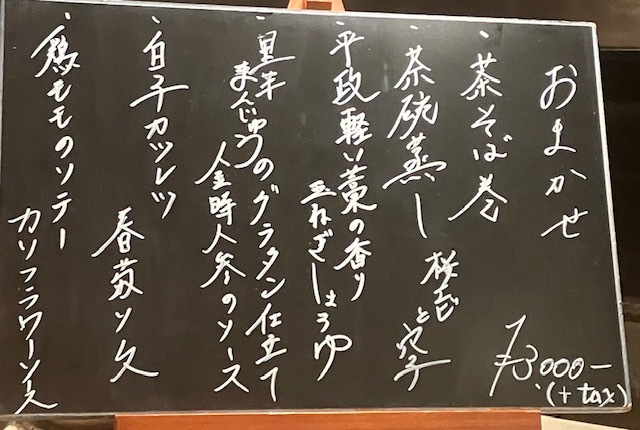 おまかせ
・茶そば巻
・茶碗蒸し
桜えびと穴子
・平政軽い藁の香り
玉ねぎしょうゆ
・里芋まんじゅうのグラタン仕立て
金時人参のソース
・白子カツレツ
春菊ソース
・鴨もものソテー
カリフラワーソース
¥3000-
(+tax)